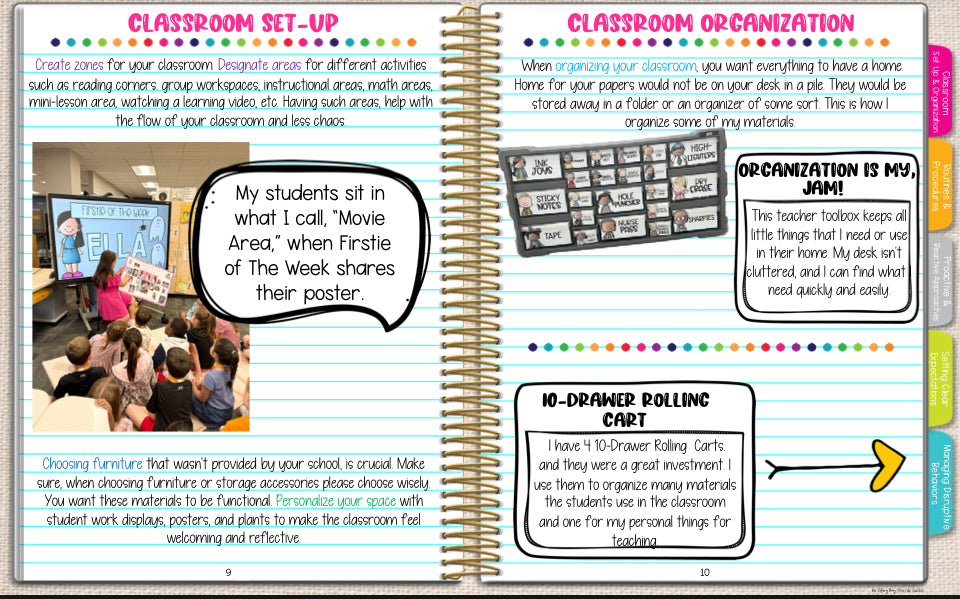 CLASSROOM SET-UP
Create zones for your classroom. Designate areas for different activities
such as reading corners. group workspaces, instructional areas, math areas,
mini-lesson area, watching a learning video, etc. Having such areas, help with
the flow of your classroom and less chaos.
FIRSTIE OF THE WEEK
ELLA
My students sit in
what I call, "Movie
Area," when Firstie
of The Week shares
their poster.
Choosing furniture that wasn't provided by your school, is crucial. Make
sure, when choosing furniture or storage accessories please choose wisely.
You want these materials to be functional. Personalize your space with
student work displays, posters, and plants to make the classroom feel
welcoming and reflective.
9
CLASSROOM ORGANIZATION
When organizing your classroom, you want everything to have a home.
Home for your papers would not be on your desk in a pile. They would be
stored away in a folder or an organizer of some sort. This is how I
organize some of my materials.
INK JOYS
HIGH-LIGHTERS
STICKY NOTES
HOLE PUNCHER
DRY ERASE
TAPE
NURSE PASS
SHARPIES
ORGANIZATION IS MY,
JAM!
This teacher toolbox keeps all
little things that I need or use
in their home. My desk isn't
cluttered, and I can find what
need quickly and easily.
10-DRAWER ROLLING
CART
I have 4 10-Drawer Rolling Carts.
and they were a great investment. I
use them to organize many materials
the students use in the classroom
and one for my personal things for
teaching.
10
Classroom
Set Up & Organization
Routines &
Procedures
Proactive &
Reactive Approaches
Setting Clear
Expectations
Managing Disruptive
Behaviors